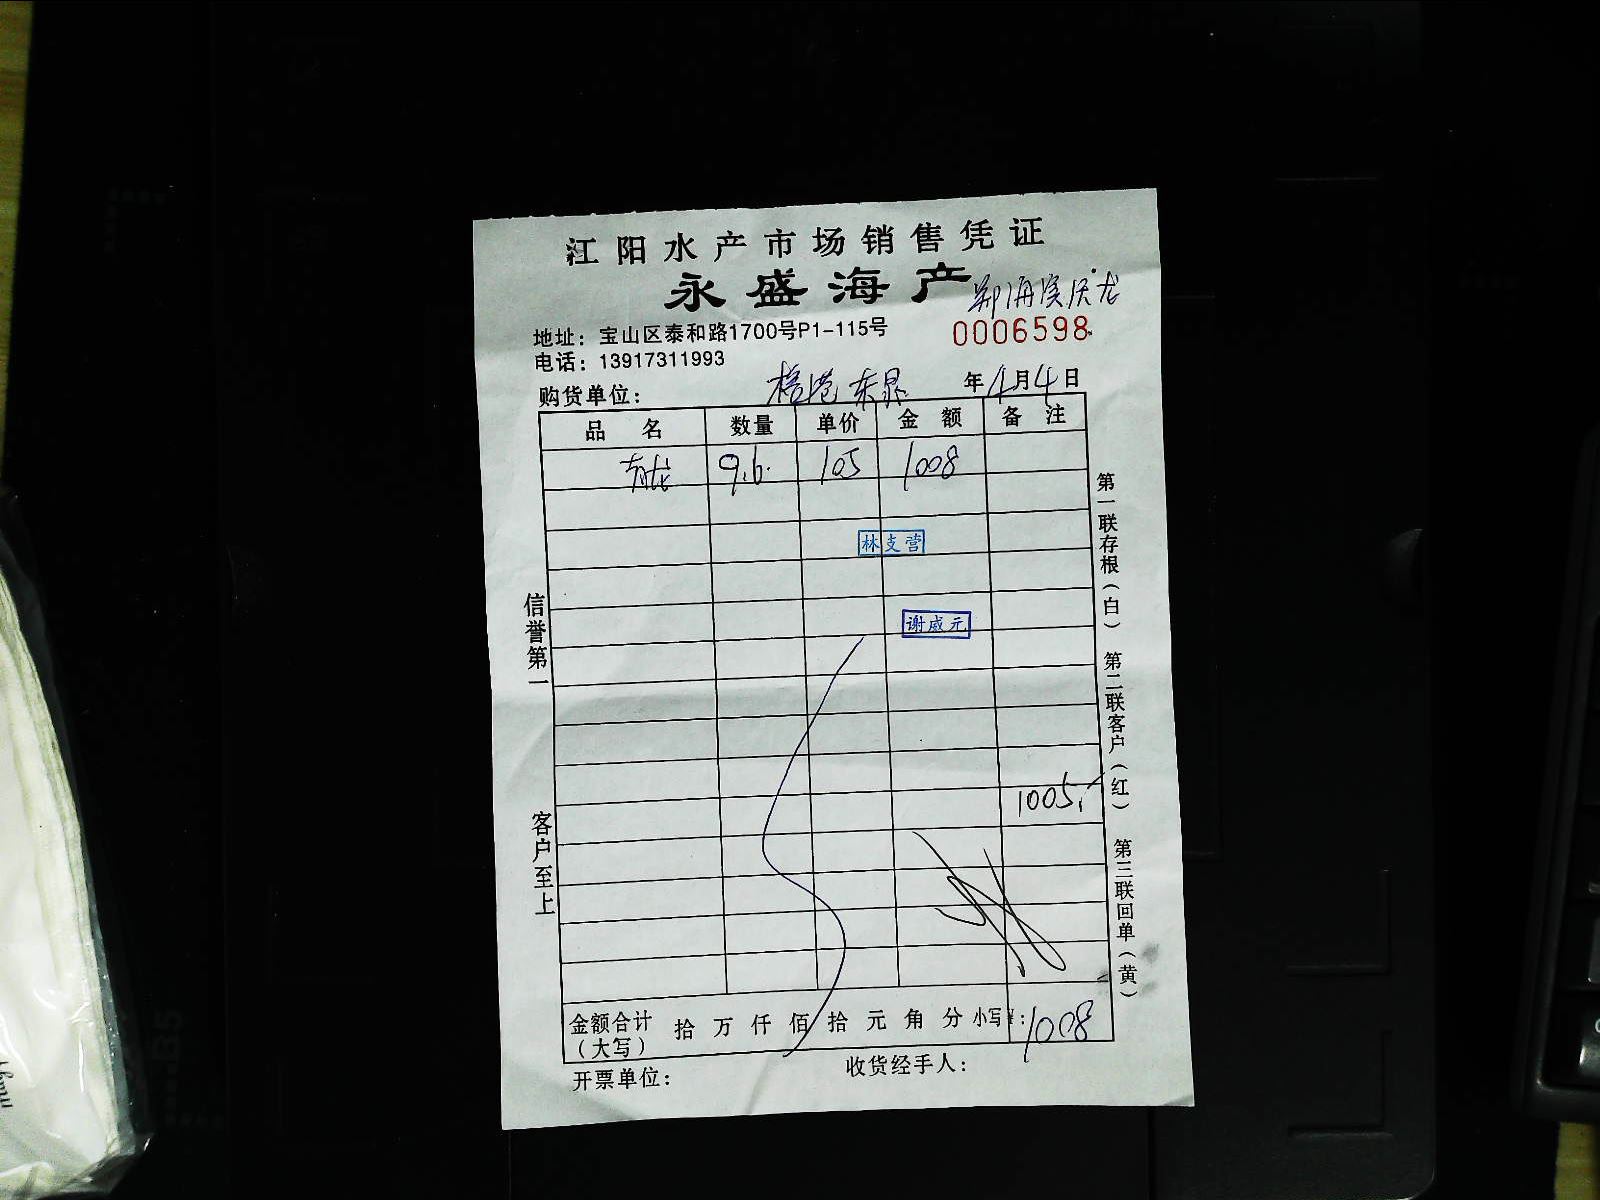 江阳水产市场销售凭证
永盛海产
地址：宝山区泰和路1700号P1-115号
0006598
电话：13917311993
购货单位： 年4月4日
品名 数量 单价 金额 备注
青龙 9.6 105 1008
林支营
谢成元
1005.-
金额合计（大写） 拾 万 仟 佰 拾 元 角 分 小写¥：1008
开票单位： 收货经手人：
信誉第一
客户至上
第一联存根（白） 第二联客户（红） 第三联回单（黄）